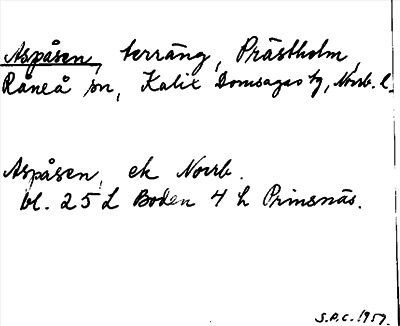 Aspåsen, terräng, Prästholm,
Råneå sn, Kalix Domsagas tg, Norrb. l.
Aspåsen, ek Norrb.
bl. 25 L Boden 4 h Prinsnäs.
S.P.C. 1957.